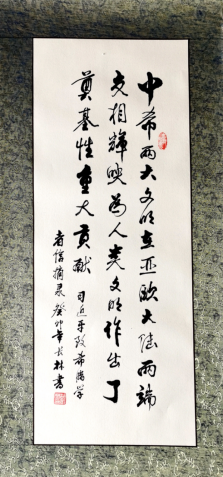 中希两大文明在亚欧大陆两端
交相辉映为人类文明作出了
奠基性重大贡献 习近平致希腊学
者信摘录癸卯年 林书